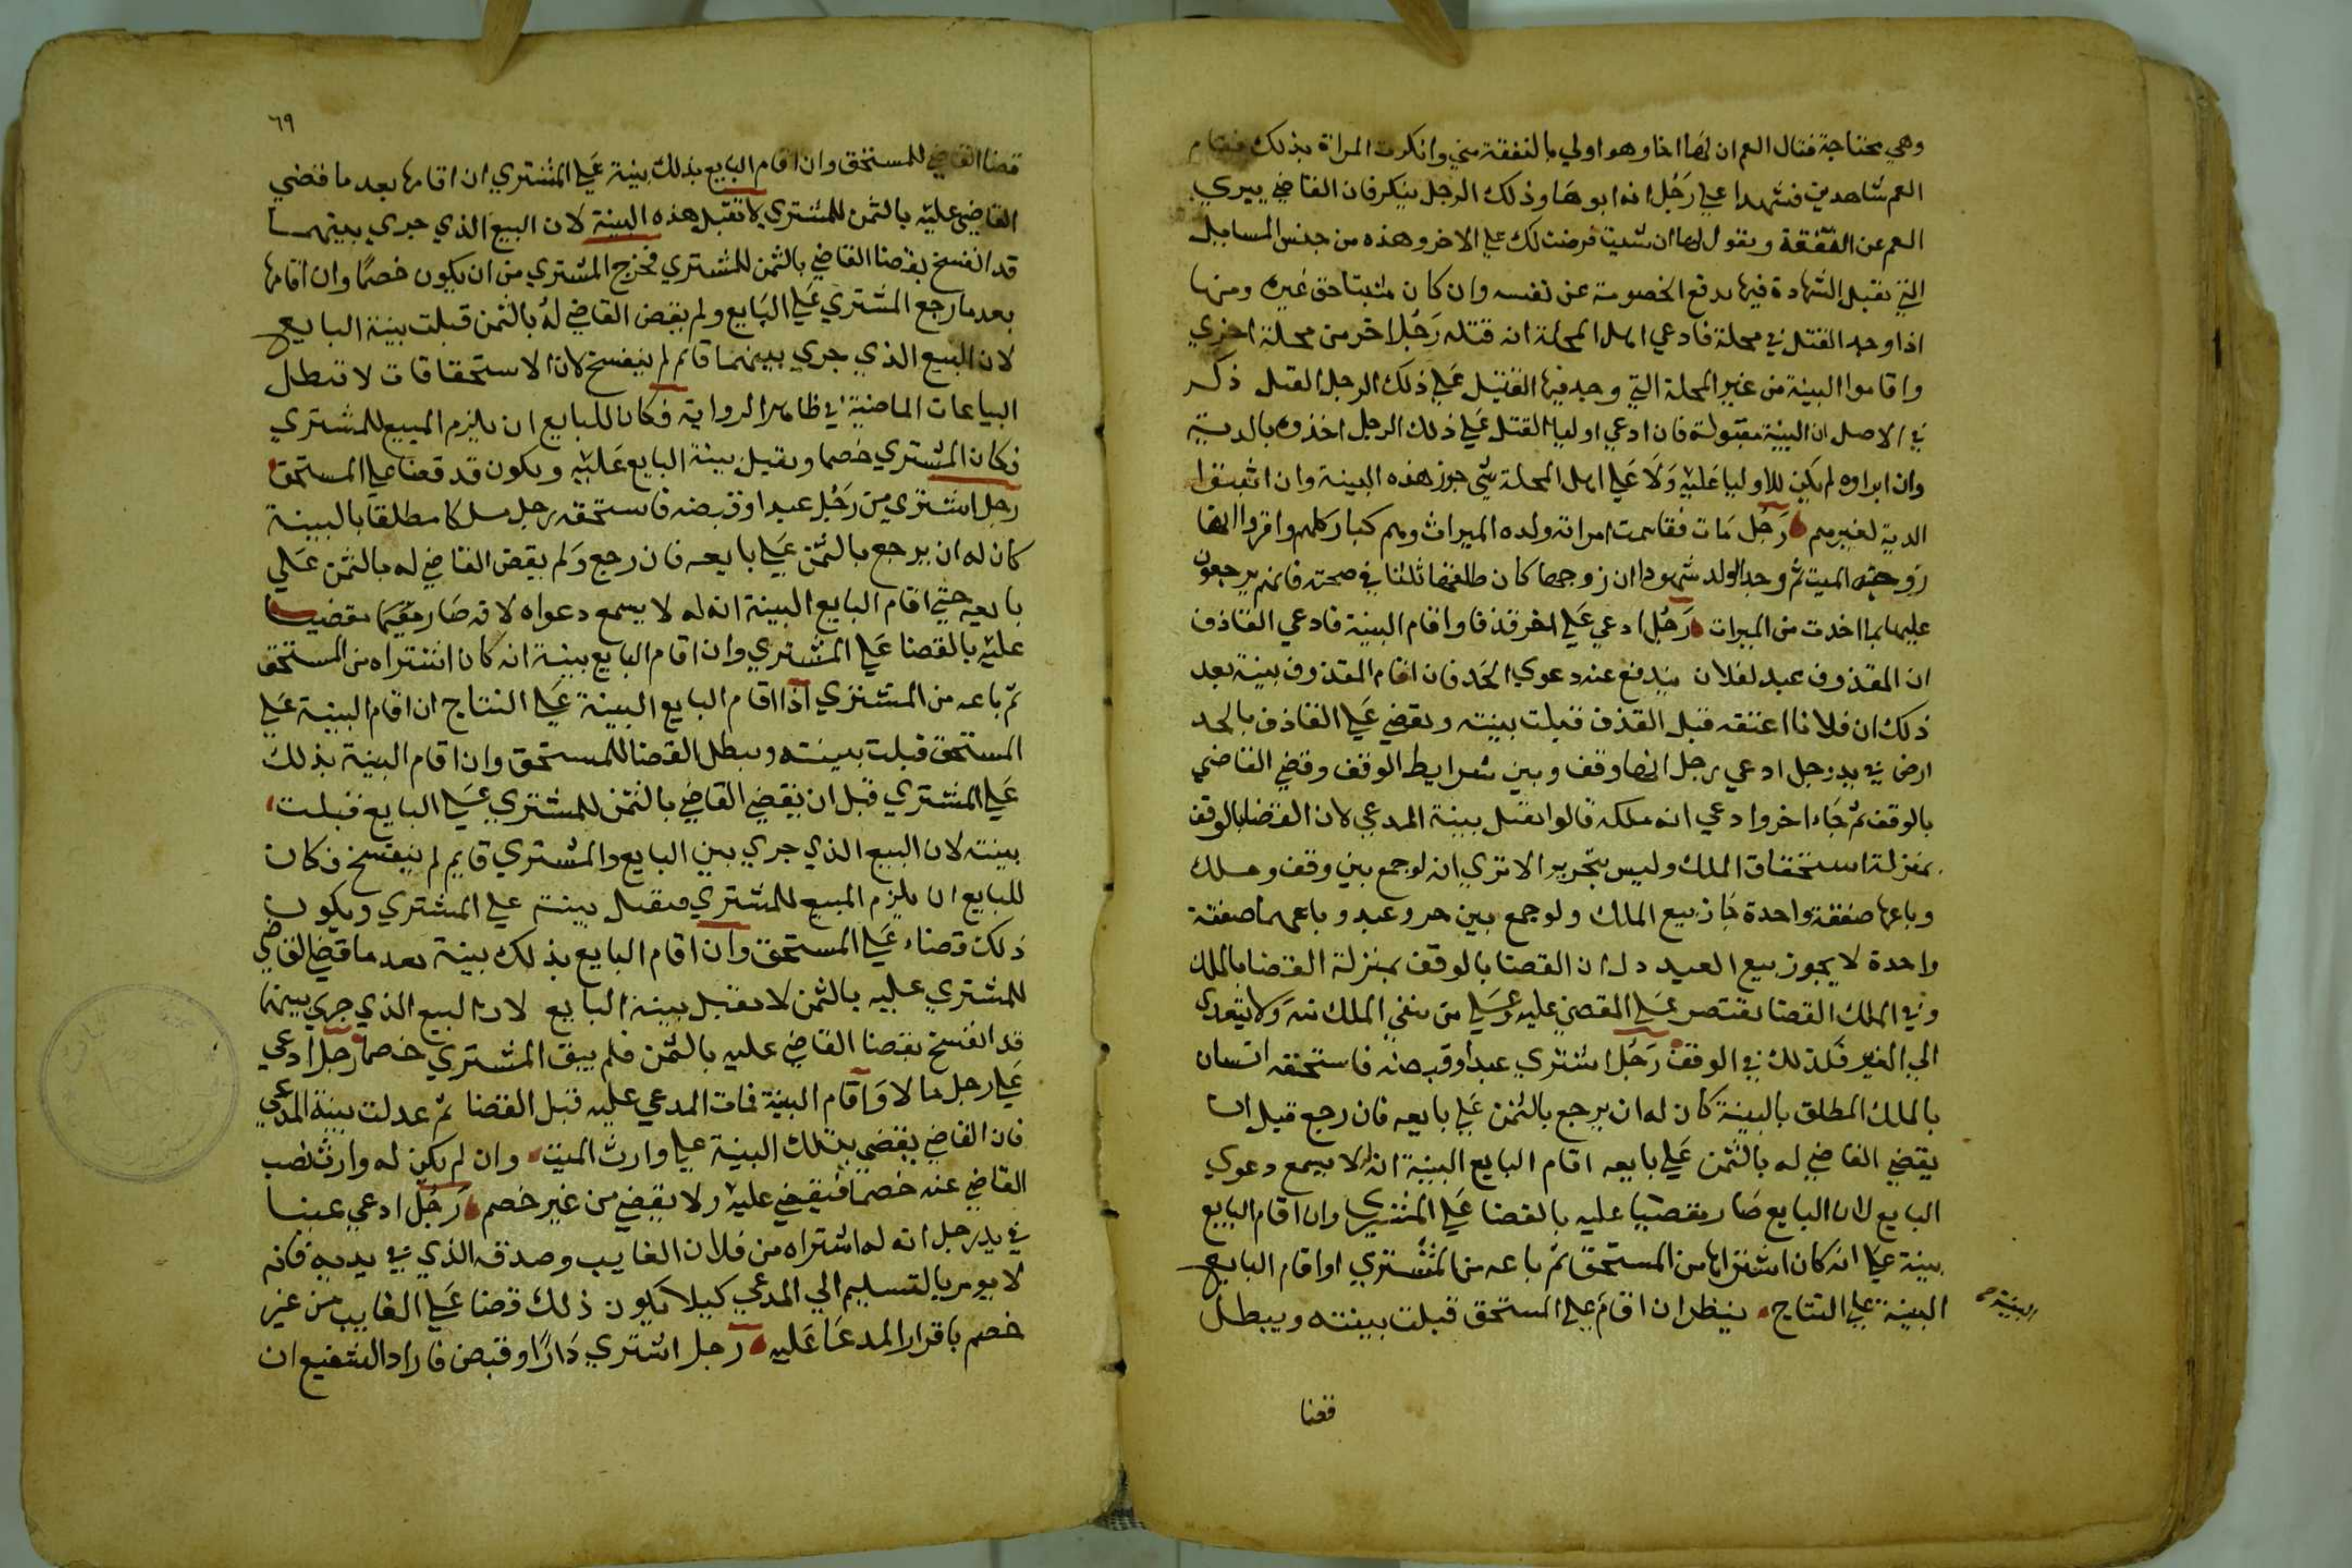 وهي محتاجة فقال العم ان لها اخا وهو اولي بالنفقة مني وانكرت المراة بذلك فقام
العم شاهدين فشهدا علي رجل انه ابوها وذلك الرجل ينكر فان القاضي يبري
العم عن النفقة ويقول لها ان شيت فرضت لك علي الاخر وهذه من جنس المسايل
التي تقبل الشهادة فيها بدفع الخصومة عن نفسه وان كان مثبتا حق غيره ومنها
اذا وجد القتل في محلة فادعي اهل المحلة انه قتله رجل اخر من محلة اخري
واقاموا البينة من غير المحلة التي وجد فيها القتيل علي ذلك الرجل القتل ذكر
في الاصل ان البينة مقبولة فان ادعي اوليا القتل علي ذلك الرجل اخذوه بالدية
وان ابراوه لم يكن للاوليا عليه ولا علي اهل المحلة شي جوز هذه البينة وان
الدية لغيرهم رجل مات فقاسمت امراته ولده الميراث وهم كبار كلهم واقروا انها
زوجة الميت ثم وجد الولد شهودا ان زوجها كان طلقها ثلثا في صحته فانهم يرجعون
عليها بما اخدت من الميراث رجل ادعي علي اخر قذفا واقام البينة فادعي القاذف
ان المقذوف عبد لفلان يندفع عنه دعوي الحد فان اقام المقذوف بينة بعد
ذلك ان فلانا اعتقه قبل القذف قبلت بينته ويقضي علي القاذف بالحد
ارض في يد رجل ادعي رجل انها وقف وبين شرايط الوقف وقضي القاضي
بالوقف ثم جاء اخر وادعي انه ملكه قالوا تقبل بينة المدعي لان القضا بالوقف
بمنزلة استحقاق الملك وليس بتحرير الا تري انه لو جمع بين وقف وملك
وباعها صفقة واحدة جاز بيع الملك ولو جمع بين حر وعبد وباعهما صفقة
واحدة لا يجوز بيع العبد دل ان القضا بالوقف بمنزلة القضا بالملك
وفي الملك القضا يقتصر علي المقضي عليه وعلي من تلقي الملك منه ولا يتعدي
الي الغير فكذلك في الوقف رجل اشتري عبدا وقبضه فاستحقه انسان
بالملك المطلق بالبينة كان له ان يرجع بالثمن علي بايعه فان رجع قبل ان
يقضي القاضي له بالثمن علي بايعه اقام البايع البينة انه له لا يسمع دعوي
البايع لان البايع صار مقضيا عليه بالقضا علي المشتري وان اقام البايع
بينة علي انه كان اشتراها من المستحق ثم باعه من المشتري او اقام البايع
البينة علي النتاج ينظر ان اقام علي المستحق قبلت بينته ويبطل
البينة صح
قضا
٦٩
قضا القاضي للمستحق وان اقام البايع بذلك بينة علي المشتري ان اقامها بعد ما قضي
القاضي عليه بالثمن للمشتري لا تقبل هذه البينة لان البيع الذي جري بينهما
قد انفسخ بقضا القاضي بالثمن للمشتري فخرج المشتري من ان يكون خصمًا وان اقامها
بعد ما رجع المشتري علي البايع ولم يقض القاضي له بالثمن قبلت بينة البايع
لان البيع الذي جري بينهما قائم لم ينفسخ لان الاستحقاقات لا تبطل
البياعات الماضية في ظاهر الرواية فكان للبايع ان يلزم المبيع للمشتري
فكان المشتري خصما ويقبل بينة البايع عليه ويكون قد قضا علي المستحق
رجل اشتري من رجل عبدا وقبضه فاستحقه رجل ملكا مطلقا بالبينة
كان له ان يرجع بالثمن علي بايعه فان رجع ولم يقض القاضي له بالثمن علي
بايعه حتي اقام البايع البينة انه له لا يسمع دعواه لانه صار مقضيا
عليه بالقضا علي المشتري وان اقام البايع بينة انه كان اشتراه من المستحق
ثم باعه من المشتري اذا اقام البايع البينة علي النتاج ان اقام البينة علي
المستحق قبلت بينته ويبطل القضا للمستحق وان اقام البينة بذلك
علي المشتري قبل ان يقضي القاضي بالثمن للمشتري علي البايع فقبلت
بينته لان البيع الذي جري بين البايع والمشتري قايم لم ينفسخ فكان
للبايع ان يلزم المبيع للمشتري فتقبل بينته علي المشتري ويكون
ذلك قضاء علي المستحق وان اقام البايع بذلك بينة بعد ما قضي القاضي
للمشتري عليه بالثمن لا تقبل بينة البايع لان البيع الذي جري بينهما
قد انفسخ بقضا القاضي عليه بالثمن فلم يبق المشتري خصما رجل ادعي
علي رجل مالا واقام البينة فمات المدعي عليه قبل القضا ثم عدلت بينة المدعي
فان القاضي يقضي بتلك البينة علي وارث الميت وان لم يكن له وارث نصب
القاضي عنه خصما فيقضي عليه ولا يقضي من غير خصم رجل ادعي عينا
في يد رجل انه له اشتراه من فلان الغايب وصدقه الذي في يديه فانه
لا يومر بالتسليم الي المدعي كيلا يكون ذلك قضا علي الغايب من غير
خصم باقرار المدعا عليه رجل اشتري دارًا وقبض فاراد الشفيع ان